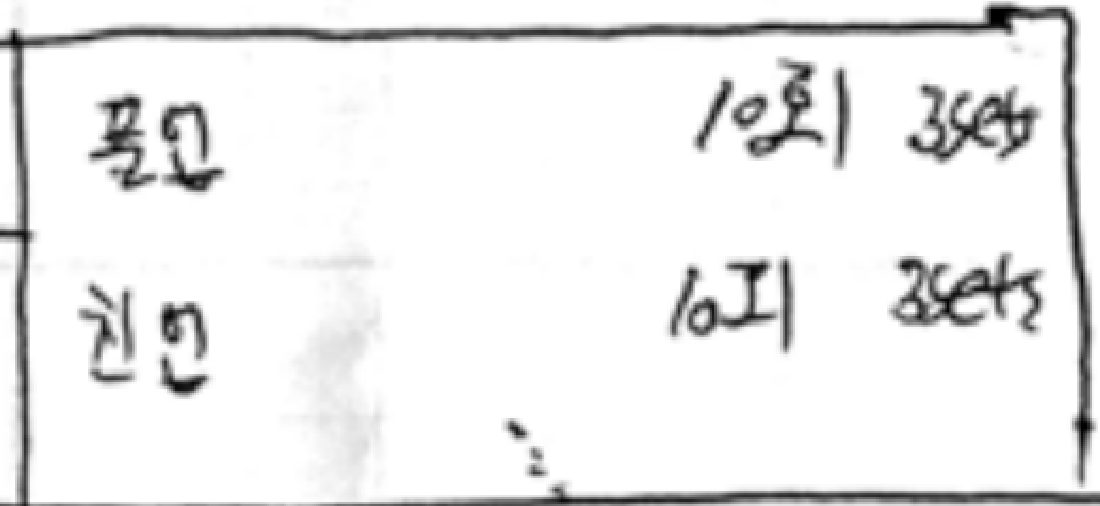 풀업 10회 3sets
친업 10회 3sets